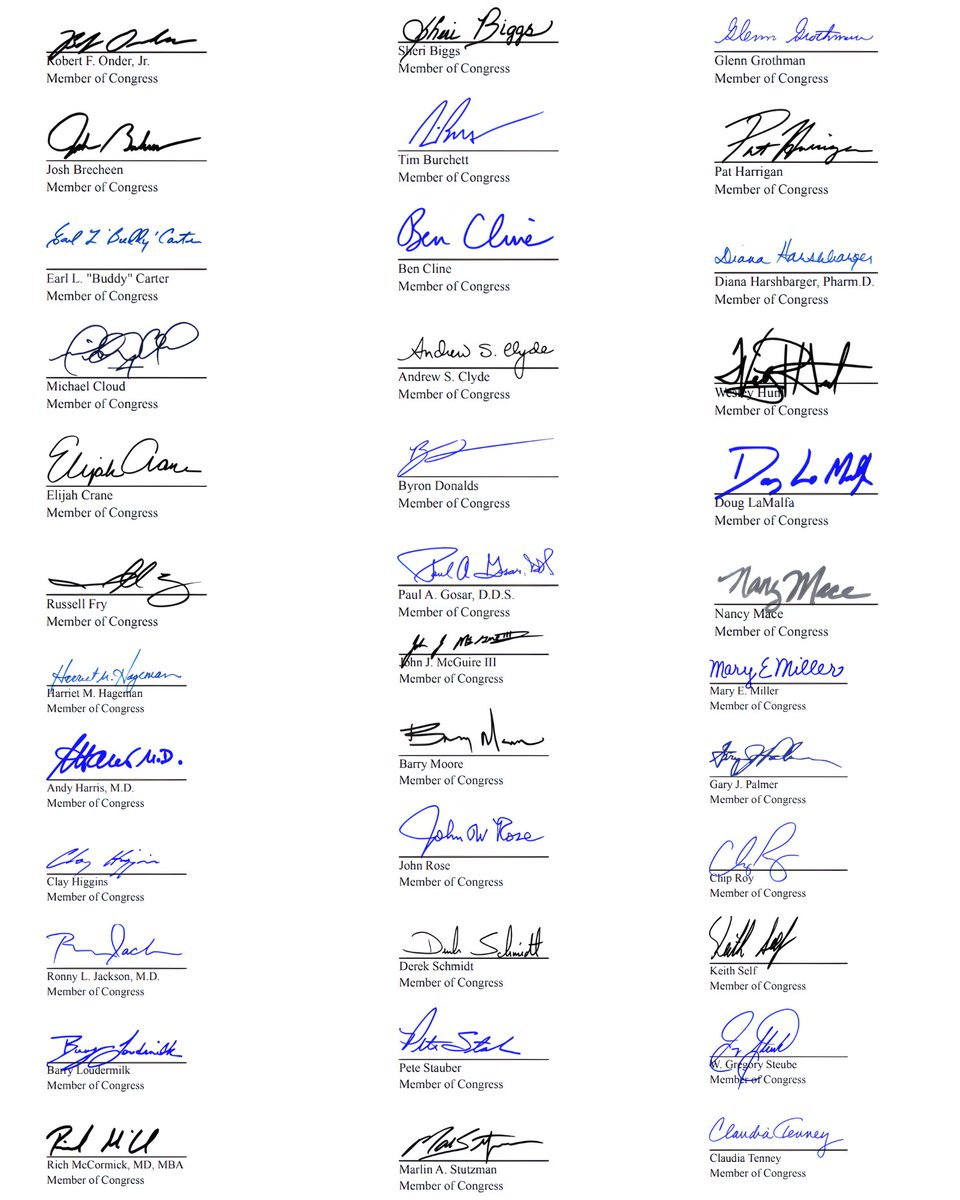 Robert F. Onder, Jr.
Member of Congress
Sheri Biggs
Sheri Biggs
Member of Congress
Glenn Grothman
Glenn Grothman
Member of Congress
Josh Brecheen
Member of Congress
Tim Burchett
Member of Congress
Pat Harrigan
Pat Harrigan
Member of Congress
Earl L "Buddy" Carter
Earl L. "Buddy" Carter
Member of Congress
Ben Cline
Ben Cline
Member of Congress
Diana Harshbarger
Diana Harshbarger, Pharm.D.
Member of Congress
Michael Cloud
Member of Congress
Andrew S. Clyde
Andrew S. Clyde
Member of Congress
Wesley Hunt
Member of Congress
Elijah Crane
Elijah Crane
Member of Congress
Byron Donalds
Member of Congress
Doug LaMalfa
Doug LaMalfa
Member of Congress
Russell Fry
Member of Congress
Paul A. Gosar, DDS
Paul A. Gosar, D.D.S.
Member of Congress
Nancy Mace
Nancy Mace
Member of Congress
Harriet M. Hageman
Harriet M. Hageman
Member of Congress
John J. McGuire III
John J. McGuire III
Member of Congress
Mary E Miller
Mary E. Miller
Member of Congress
M.D.
Andy Harris, M.D.
Member of Congress
Barry Moore
Member of Congress
Gary J. Palmer
Member of Congress
Clay Higgins
Clay Higgins
Member of Congress
John W Rose
John Rose
Member of Congress
Chip Roy
Member of Congress
Ronny L. Jackson, M.D.
Member of Congress
Derek Schmidt
Derek Schmidt
Member of Congress
Keith Self
Keith Self
Member of Congress
Barry Loudermilk
Barry Loudermilk
Member of Congress
Pete Stauber
Member of Congress
W. Gregory Steube
Member of Congress
Rich McCormick, MD, MBA
Member of Congress
Marlin A. Stutzman
Member of Congress
Claudia Tenney
Claudia Tenney
Member of Congress